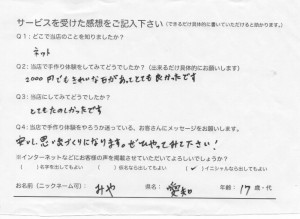 サービスを受けた感想をご記入下さい（できるだけ具体的に書いていただけると助かります。）
Q1：どこで当店のことを知りましたか？
ネット
Q2：当店で手作り体験をしてみてどうでしたか？（出来るだけ具体的にお願いします）
2000円でもきれいな石があってとても良かったです
Q3：当店にしてみてどうでしたか？
とてもたのしかったです
Q4：当店で手作り体験をやろうか迷っている、お客さんにメッセージをお願いします。
安いし、思い出づくりになります。ぜひやってみて下さい！
※インターネットなどにお客様の声を掲載させていただいてよろしいでしょうか？
（　）名字を出してもよい　（　）仮名なら出してもよい　（✓）イニシャルなら出してもよい
お名前（ニックネーム可）：みや　県名：愛知　年齢：17歳・代